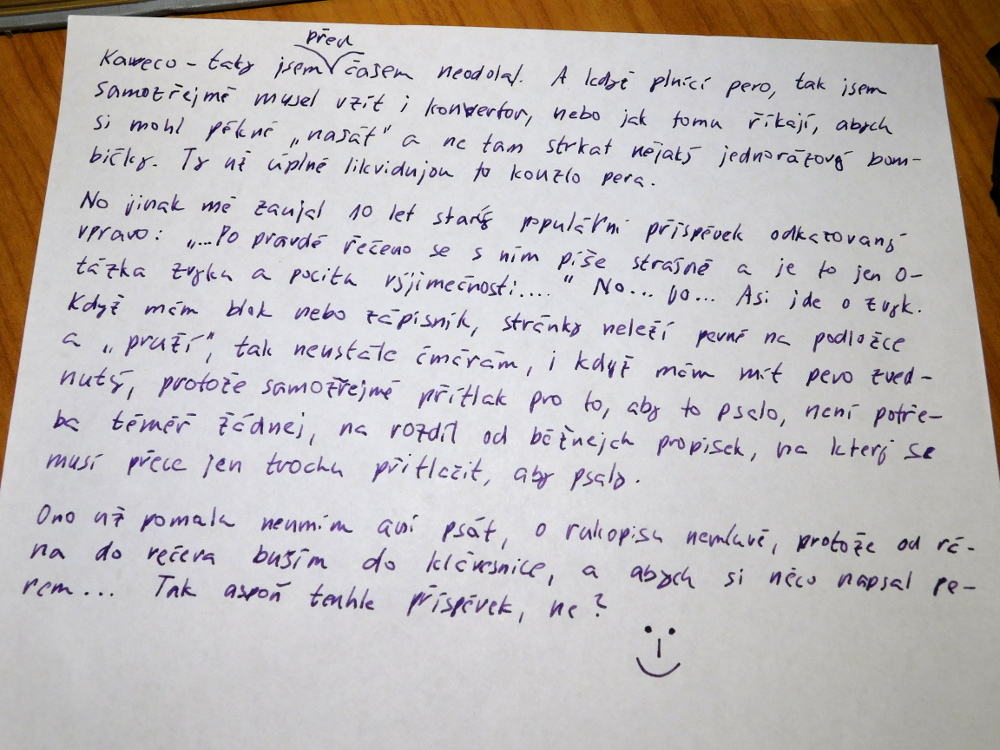 před
Kaweco – taky jsem časem neodolal. A když plnící pero, tak jsem
samozřejmě musel vzít i konvertor, nebo jak tomu říkají, abych
si mohl pěkně „nasát" a ne tam strkat nějaký jednorázový bom-
bičky. Ty už úplně likvidujou to kouzlo pera.
No jinak mě zaujal 10 let starý populární příspěvek odkazovaný
vpravo: „...Po pravdě řečeno se s ním píše strašně a je to jen o-
tázka zvyku a pocitu výjimečnosti...." No... jo... Asi jde o zvyk.
Když mám blok nebo zápisník, stránky neleží pevně na podložce
a „pruží", tak neustále čmárám, i když mám mít pero zved-
nutý, protože samozřejmě přítlak pro to, aby to psalo, není potře-
ba téměř žádnej, na rozdíl od běžnejch propisek, na který se
musí přece jen trochu přitlačit, aby psaly.
Ono už pomalu neumím ani psát, o rukopisu nemluvě, protože od rá-
na do večera buším do klávesnice, a abych si něco napsal pe-
rem... Tak aspoň tenhle příspěvek, ne?